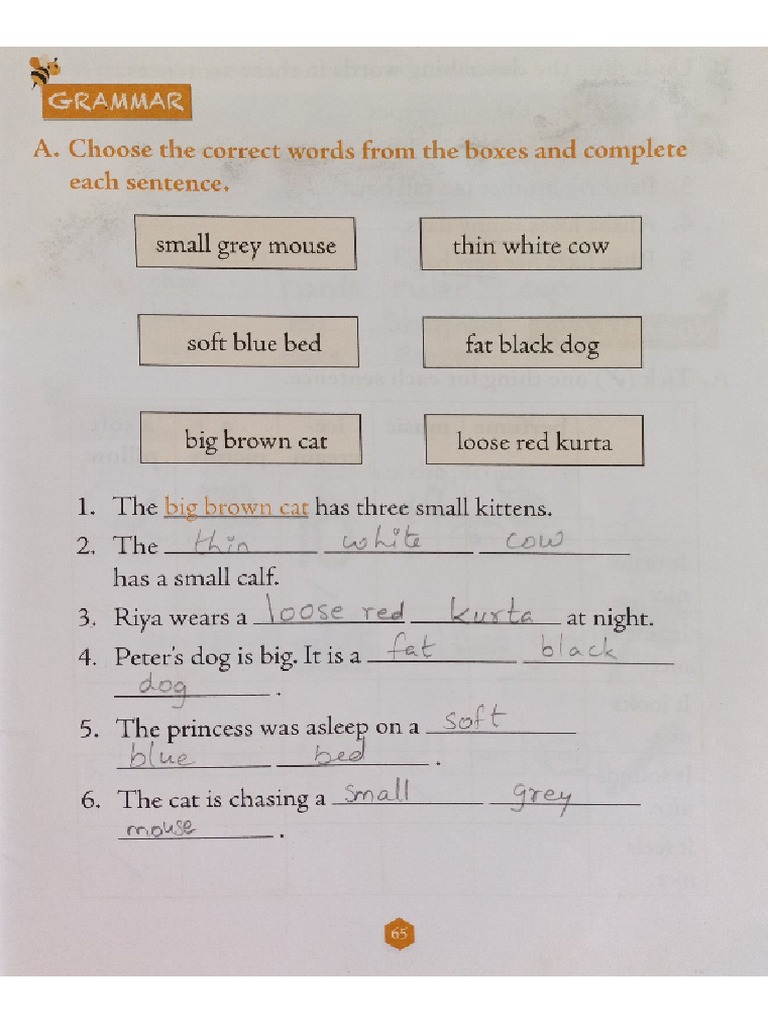 GRAMMAR
A. Choose the correct words from the boxes and complete
each sentence.
small grey mouse thin white cow
soft blue bed fat black dog
big brown cat loose red kurta
1. The big brown cat has three small kittens.
2. The thin white cow
has a small calf.
3. Riya wears a loose red kurta at night.
4. Peter's dog is big. It is a fat black
dog.
5. The princess was asleep on a soft
blue bed.
6. The cat is chasing a small grey
mouse.
65